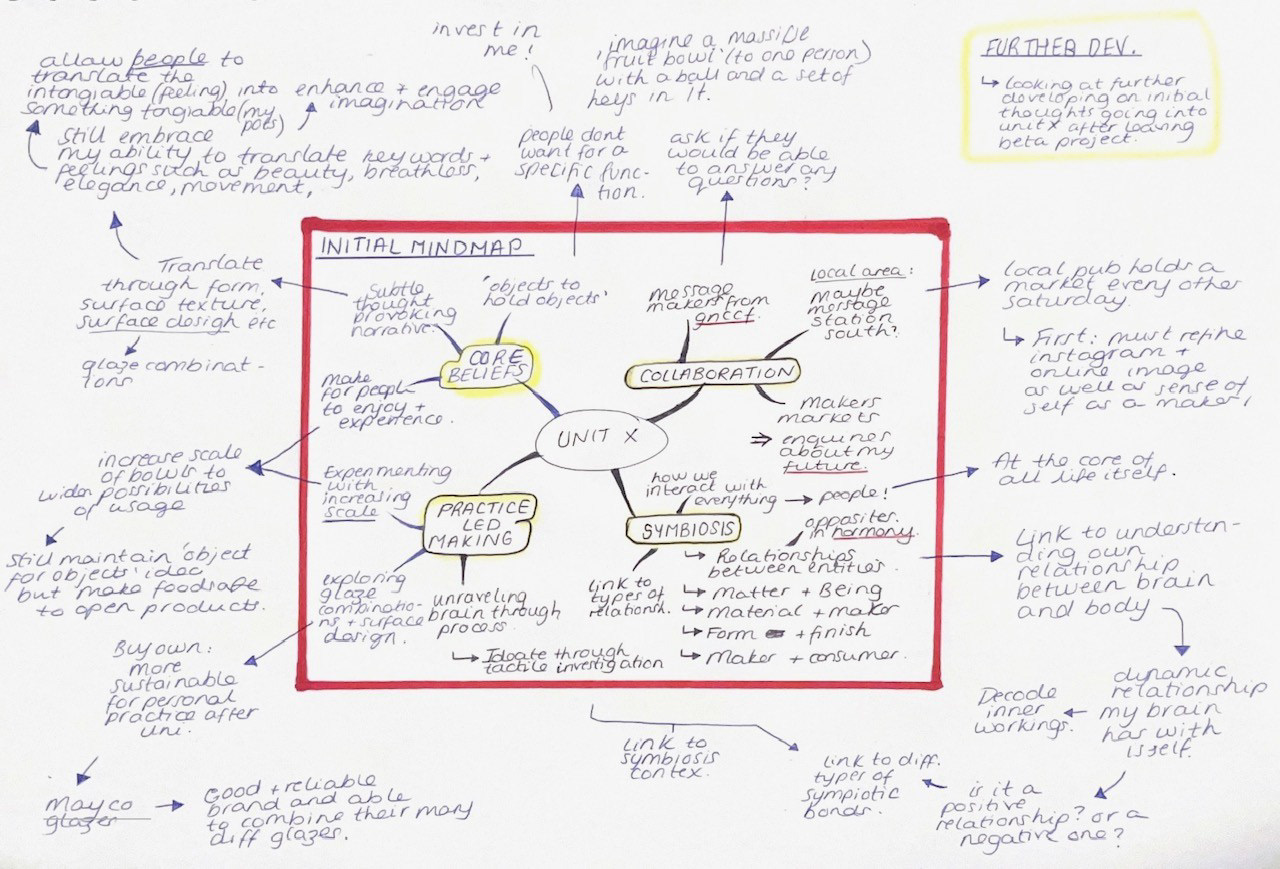 allow people to
translate the
intangiable (feeling) into
something tangiable (my
pots)
enhance + engage
imagination
still embrace
my ability to translate key words +
feelings such as beauty, breathless,
elegance, movement,
Translate
through form,
surface texture,
surface design etc
glaze combinat-
ions
invest in
me!
people dont
want for a
specific func-
tion.
imagine a massive
'fruit bowl' (to one person)
with a ball and a set of
keys in it.
ask if they
would be able
to answer any
questions?
FURTHER DEV.
↳ looking at further
developing on initial
thoughts going into
unit x after leaving
beta project.
INITIAL MINDMAP
subtle
thought
provoking
narrative.
'objects to
hold objects'
CORE
BELIEFS
make
for people
to enjoy +
experience.
message
makers from
gnccf.
local area:
maybe
message
station
south?
COLLABORATION
makers
markets
⇒ enquiries
about my
future.
UNIT X
Experimenting
with
increasing
scale
PRACTICE
LED
MAKING
exploring
glaze
combinatio-
ns + surface
design.
unraveling
brain through
process.
↳ Ideate through
tactile investigation
how we
interact with
everything → people!
SYMBIOSIS
opposites
in harmony.
link to
types of
relationsh.
↳ Relationships
between entities.
↳ Matter + Being
↳ Material + maker
↳ Form + finish
↳ Maker + consumer.
local pub holds a
market every other
saturday.
↳ First: must refine
instagram +
online image
as well as sense of
self as a maker!
At the core of
all life itself.
Link to understan-
ding own
relationship
between brain
and body
dynamic
relationship
my brain
has with
itself.
Decode
inner
workings.
is it a
positive
relationship? or a
negative one?
link to diff.
types of
sympiotic
bonds.
link to
symbiosis
contex.
increase scale
of bowls to
widen possibilities
of usage
still maintain 'object
for objects' idea
but make foodsafe
to open products.
Buy own:
more
sustainable
for personal
practice after
uni.
mayco
glazes
→ Good + reliable
brand and able
to combine their many
diff glazes.